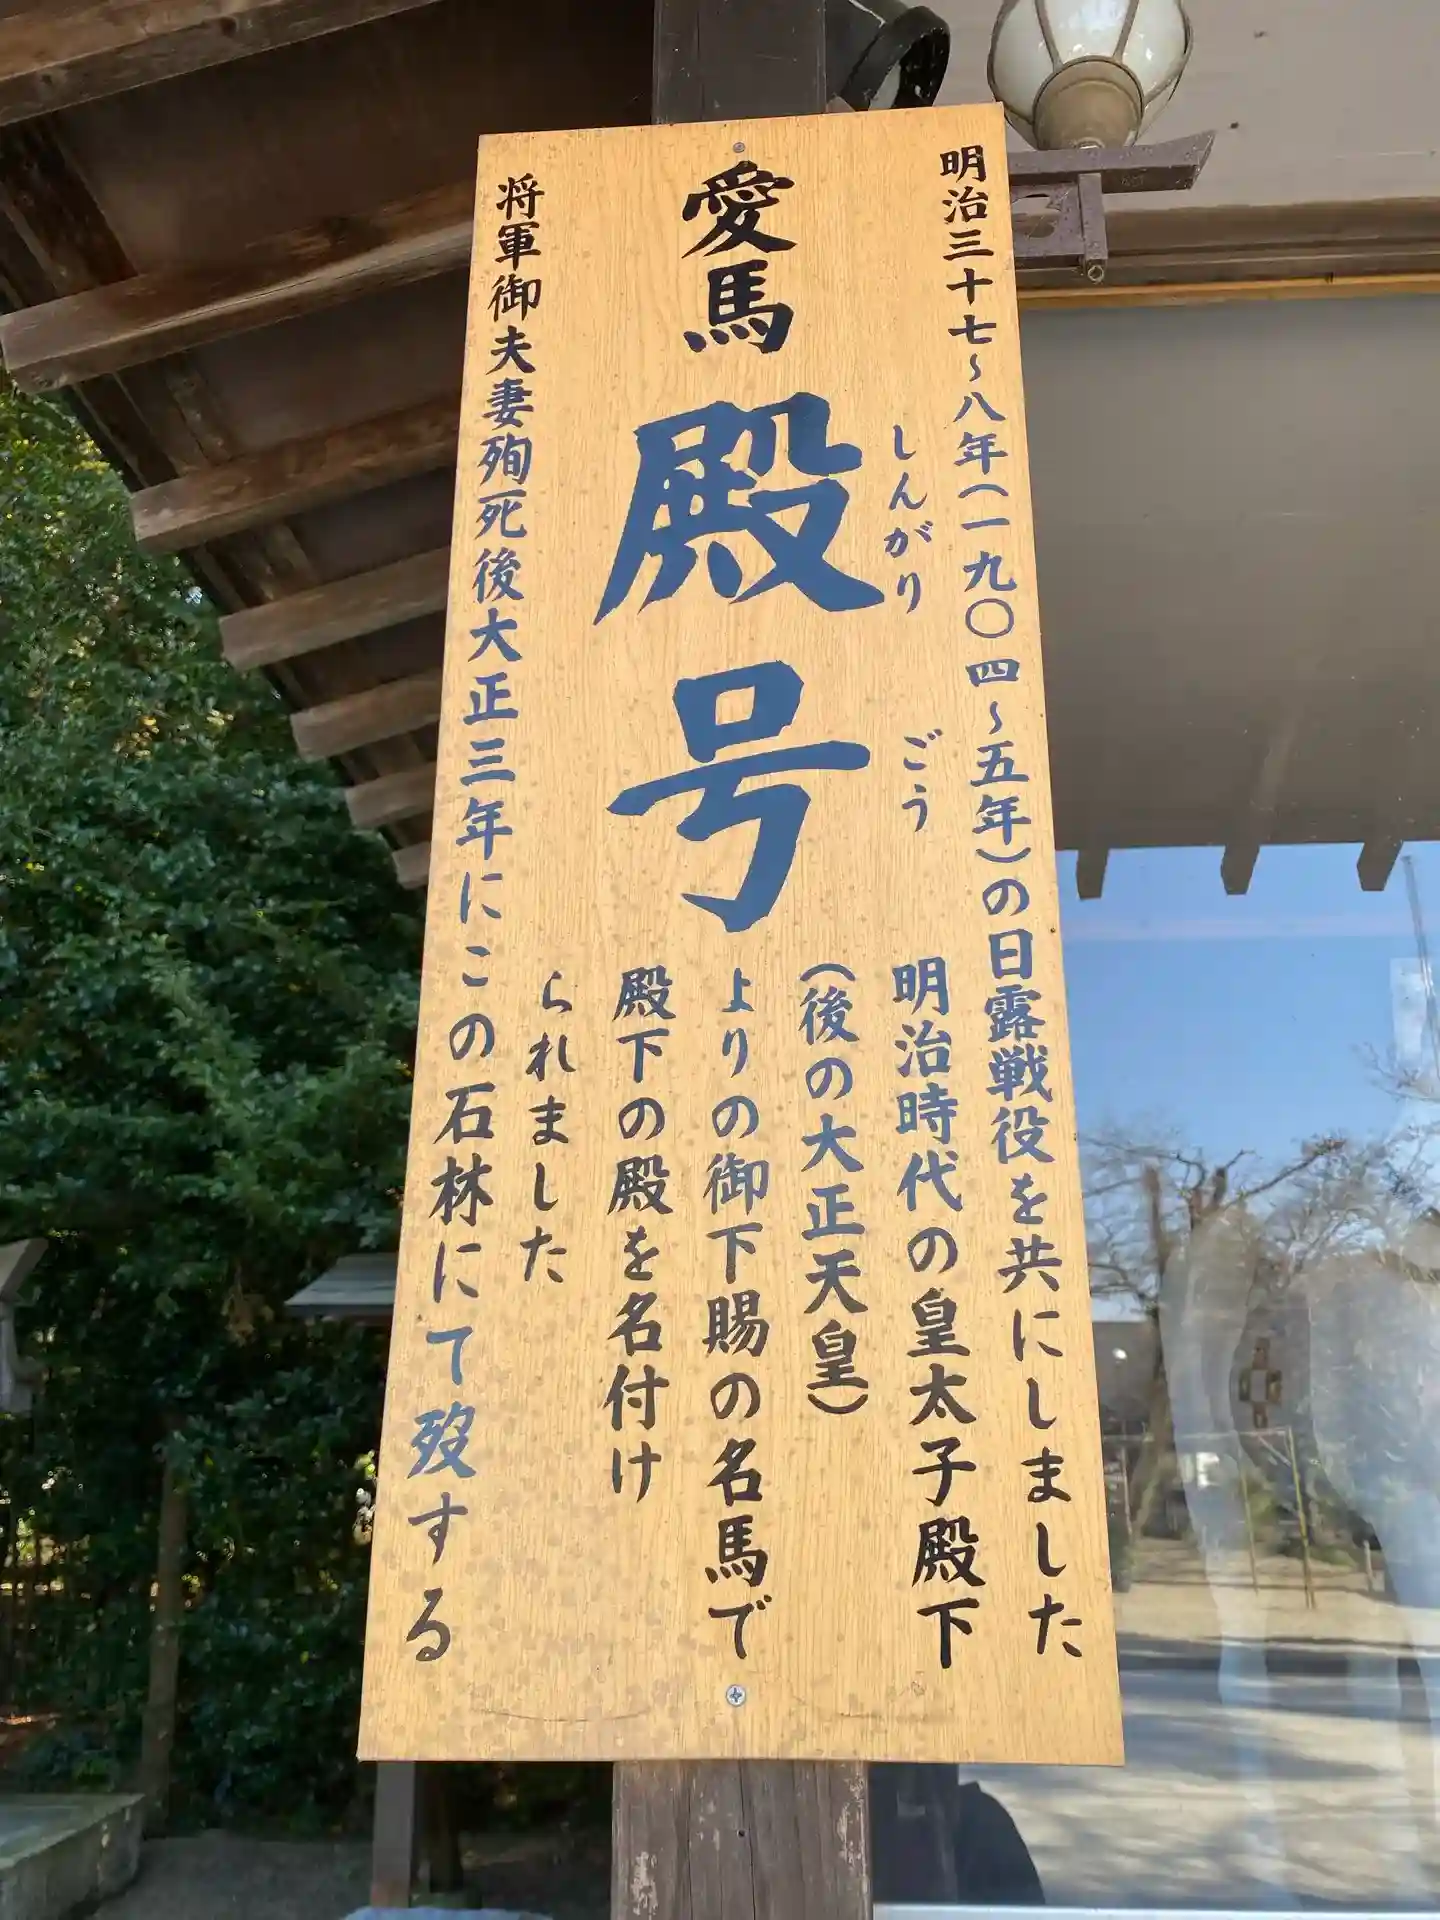 明治三十七〜八年(一九〇四〜五年)の日露戦役を共にしました
愛馬 殿号
しんがり ごう
明治時代の皇太子殿下
(後の大正天皇)
よりの御下賜の名馬で
殿下の殿を名付け
られました
将軍御夫妻殉死後大正三年にこの石林にて歿する